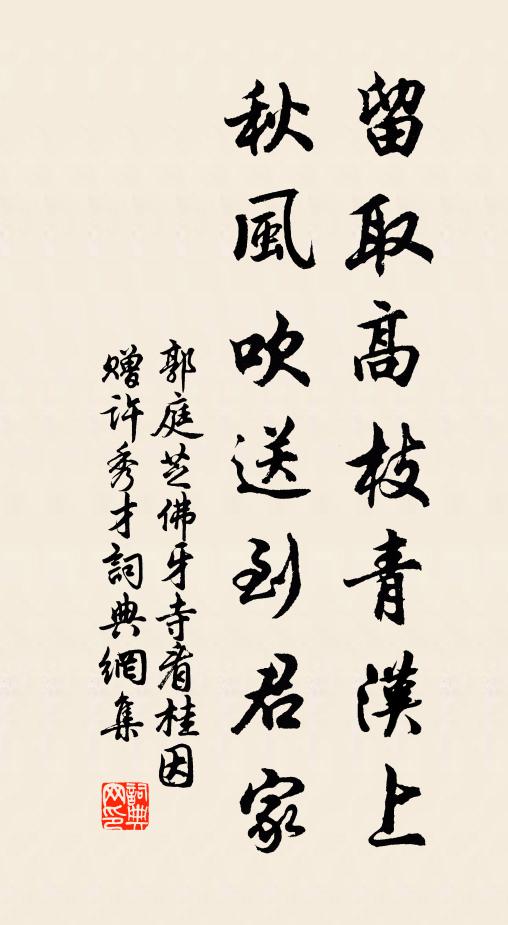 留取高枝青漢上
秋風吹送到君家
郭庭芝佛牙寺看桂因
贈許秀才詞典網集
詞典
网印